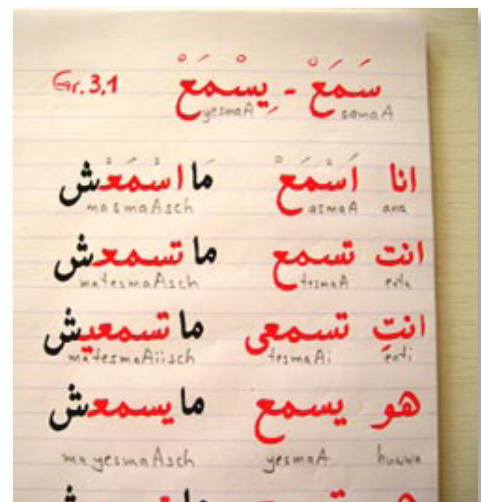 Gr. 3.1 سَمَعْ - يِسْمَعْ
yesmaA samaA
انا اَسْمَعْ مَا اسْمَعْش
ana asmaA masmaAsch
انت تسمع ما تسمعش
enta tesmaA matesmaAsch
انتِ تسمعى ما تسمعيش
enti tesmaAi matesmaAiisch
هو يسمع ما يسمعش
huwwa yesmaA ma yesmaAsch